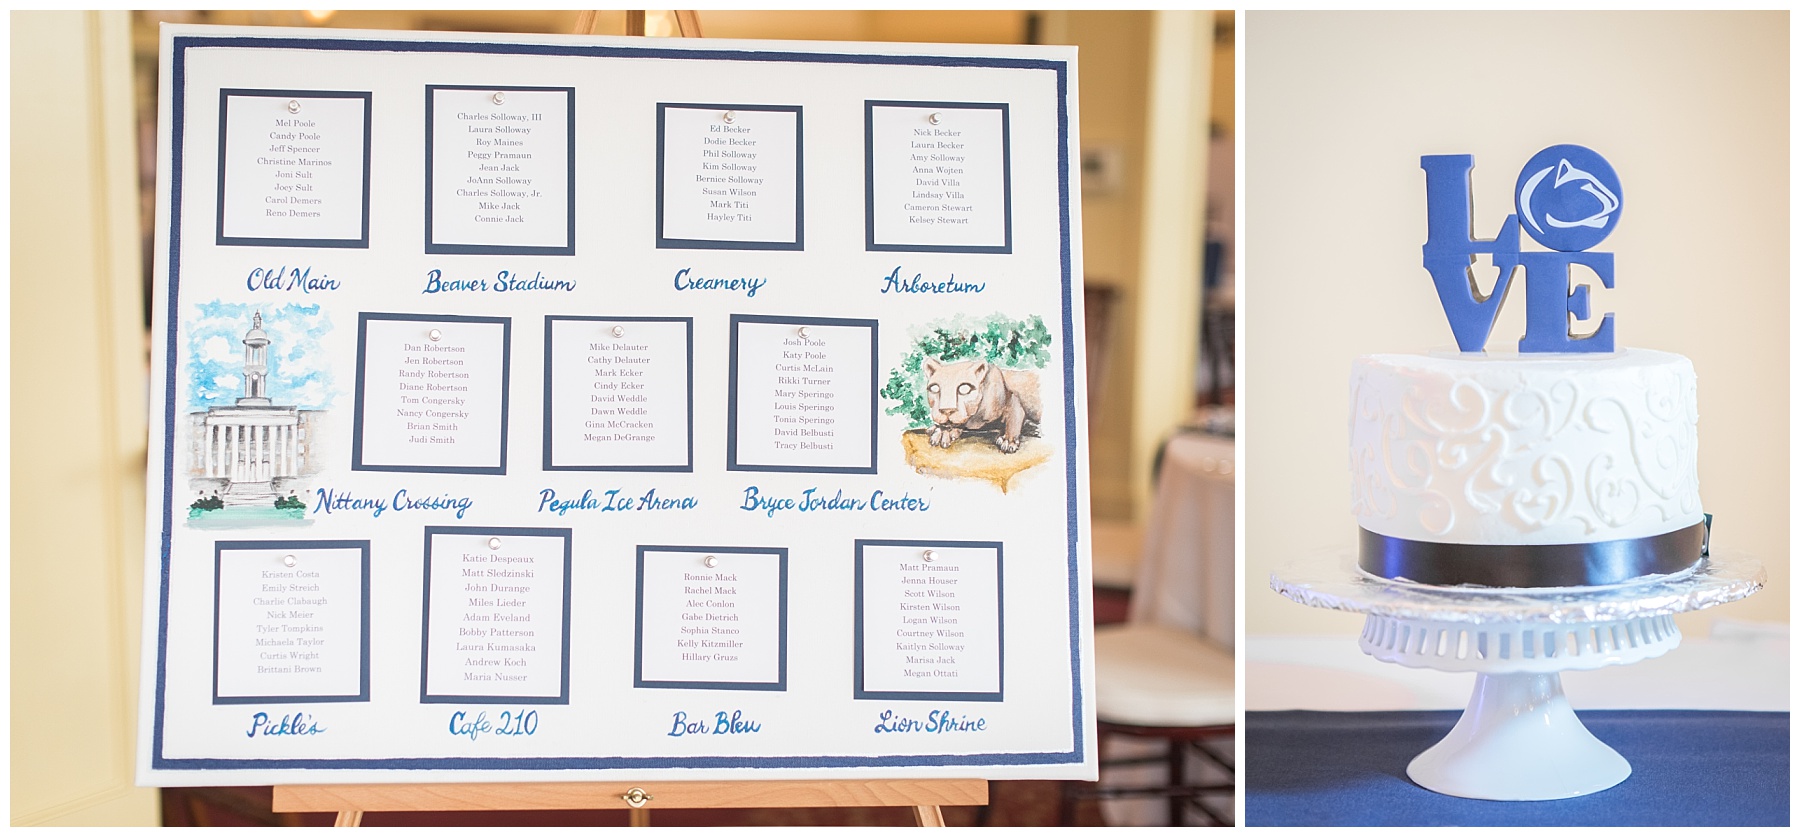 Mel Poole
Candy Poole
Jeff Spencer
Christine Marinos
Joni Sult
Joey Sult
Carol Demers
Reno Demers
Old Main
Charles Solloway, III
Laura Solloway
Roy Maines
Peggy Pramaun
Jean Jack
JoAnn Solloway
Charles Solloway, Jr.
Mike Jack
Connie Jack
Beaver Stadium
Ed Becker
Dodie Becker
Phil Solloway
Kim Solloway
Bernice Solloway
Susan Wilson
Mark Titi
Hayley Titi
Creamery
Nick Becker
Laura Becker
Amy Solloway
Anna Wojten
David Villa
Lindsay Villa
Cameron Stewart
Kelsey Stewart
Arboretum
Dan Robertson
Jen Robertson
Randy Robertson
Diane Robertson
Tom Congersky
Nancy Congersky
Brian Smith
Judi Smith
Nittany Crossing
Mike Delauter
Cathy Delauter
Mark Ecker
Cindy Ecker
David Weddle
Dawn Weddle
Gina McCracken
Megan DeGrange
Pegula Ice Arena
Josh Poole
Katy Poole
Curtis McLain
Rikki Turner
Mary Speringo
Louis Speringo
Tonia Speringo
David Belbusti
Tracy Belbusti
Bryce Jordan Center
Kristen Costa
Emily Streich
Charlie Clabaugh
Nick Meier
Tyler Tompkins
Michaela Taylor
Curtis Wright
Brittani Brown
Pickle's
Katie Despeaux
Matt Sledzinski
John Durange
Miles Lieder
Adam Eveland
Bobby Patterson
Laura Kumasaka
Andrew Koch
Maria Nusser
Cafe 210
Ronnie Mack
Rachel Mack
Alec Conlon
Gabe Dietrich
Sophia Stanco
Kelly Kitzmiller
Hillary Gruzs
Bar Bleu
Matt Pramaun
Jenna Houser
Scott Wilson
Kirsten Wilson
Logan Wilson
Courtney Wilson
Kaitlyn Solloway
Marisa Jack
Megan Ottati
Lion Shrine
LO
VE